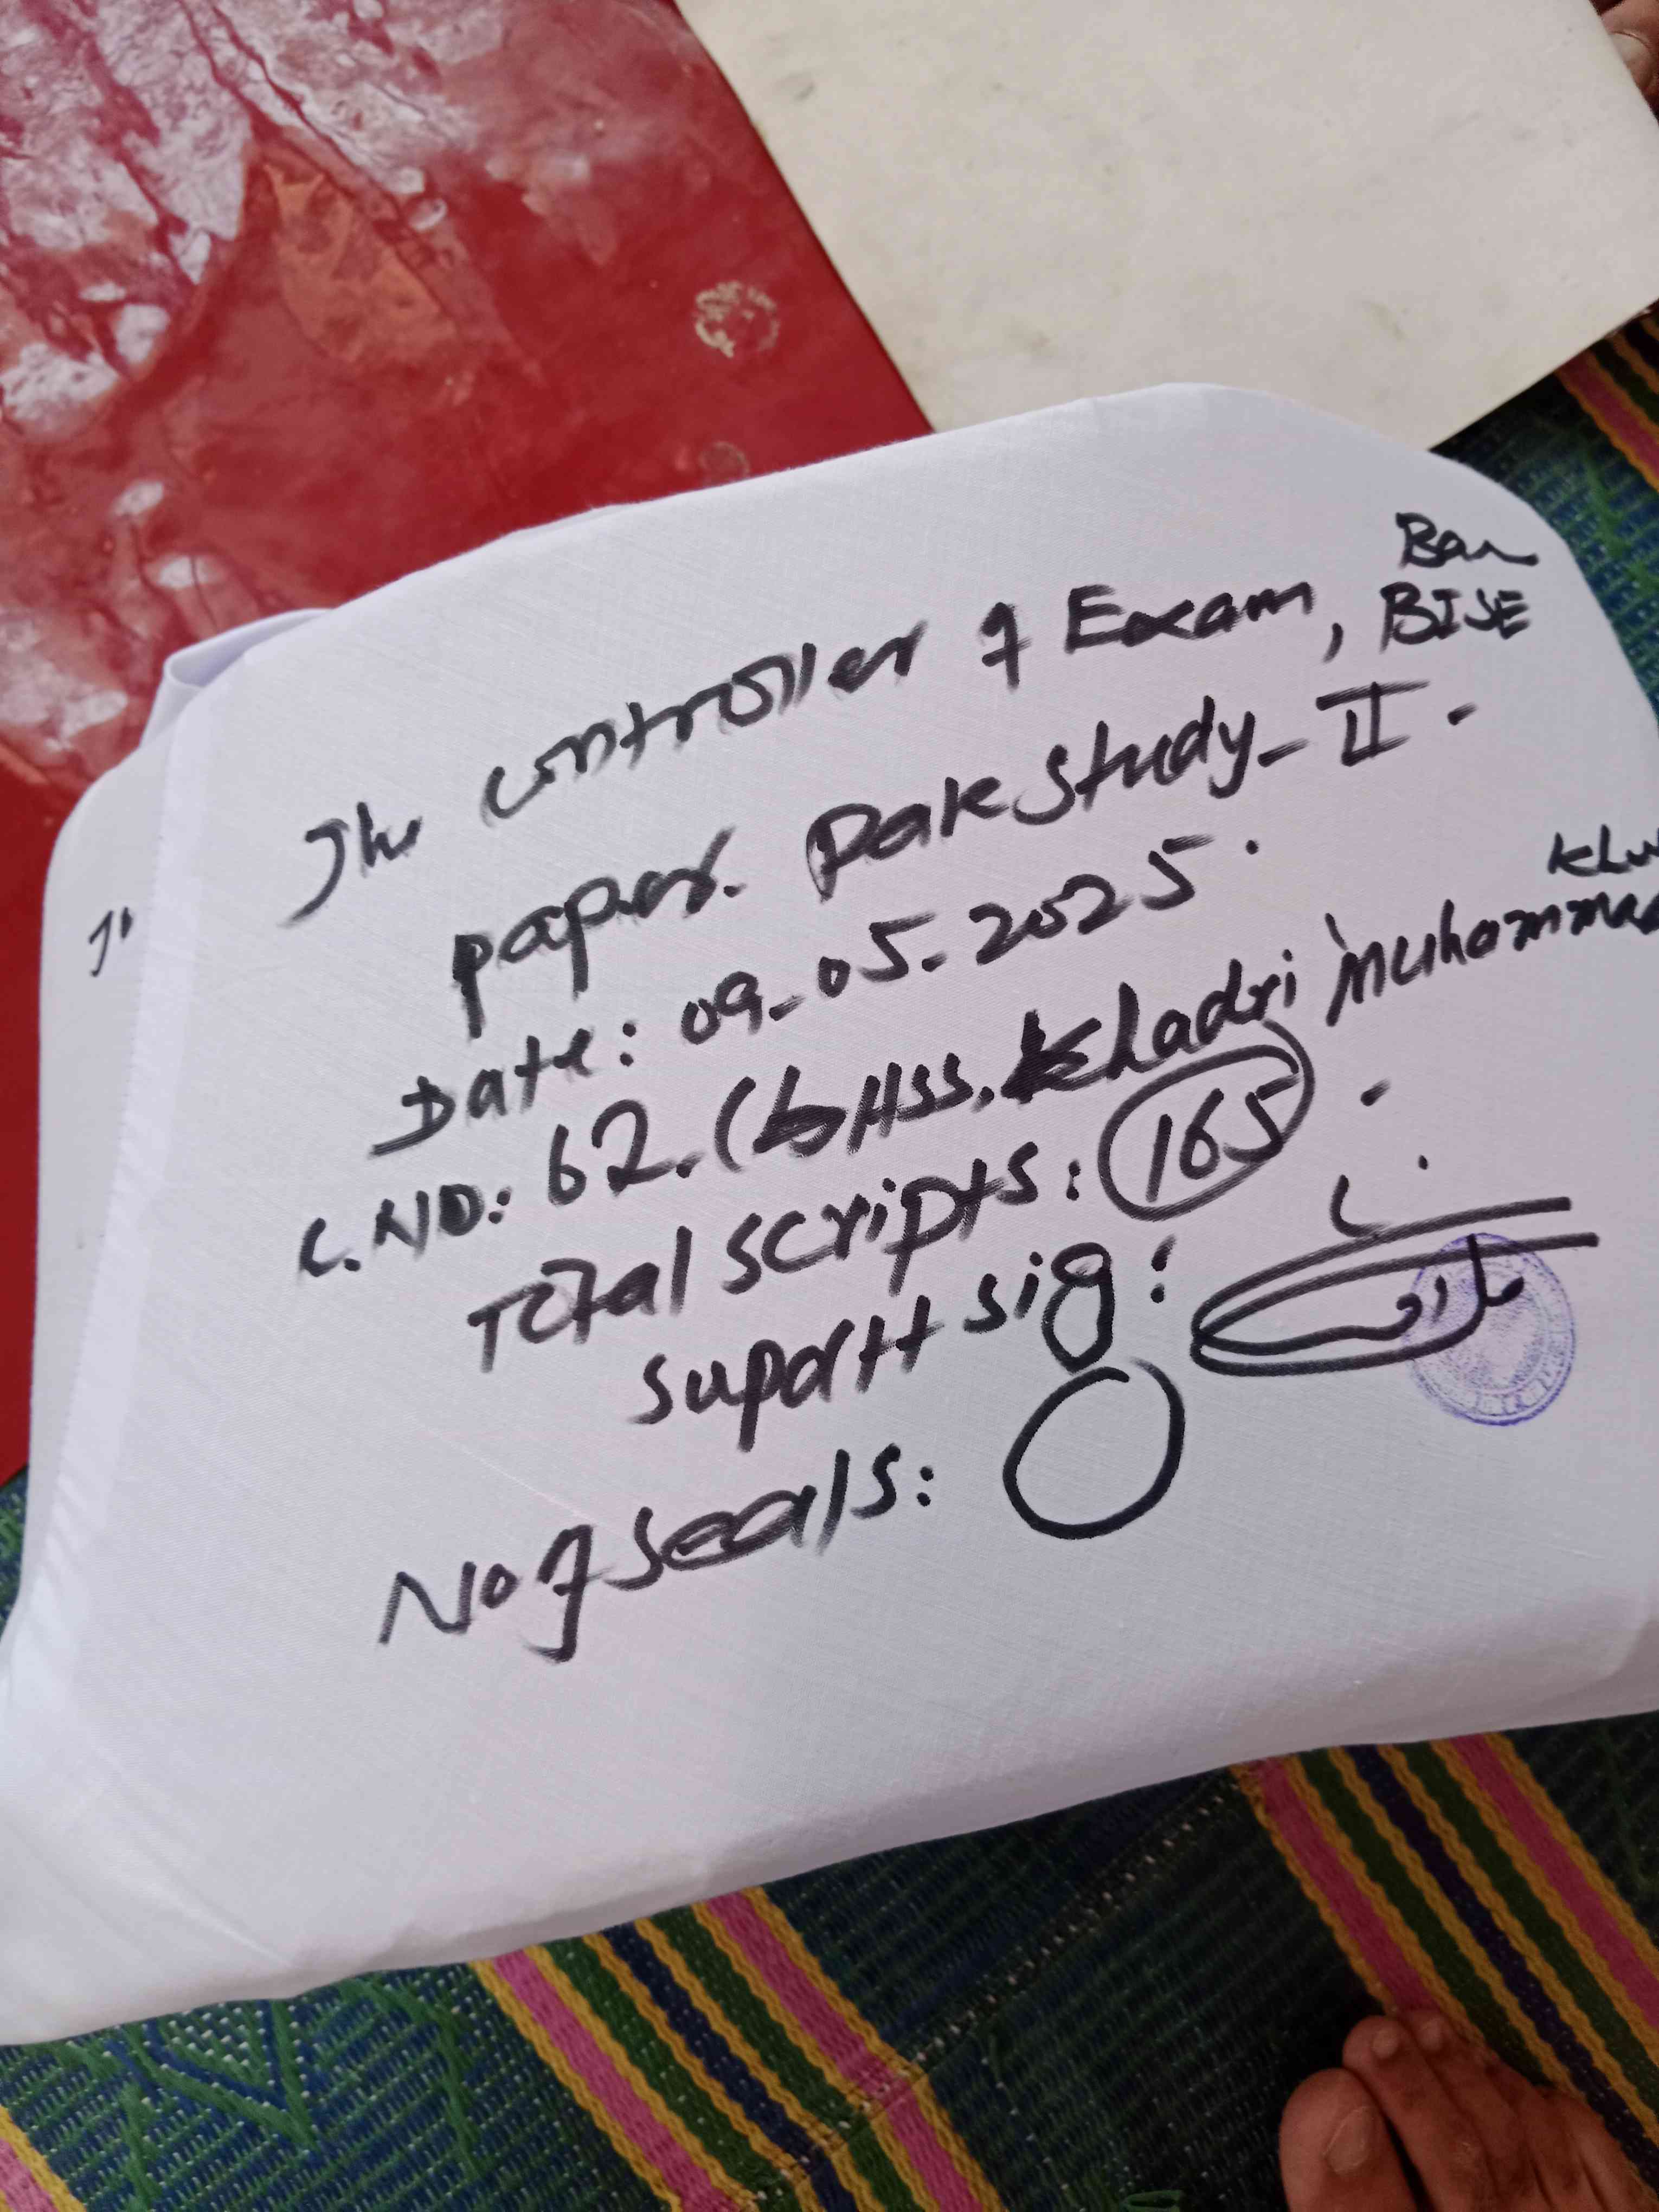 The controller of Exam, BISE
paper. Pak Study-II.
Date: 09-05-2025.
C.NO: 62. (GHSS. Khadri Muhammad
Total scripts: 165
Supdtt sig:
No of Seals: